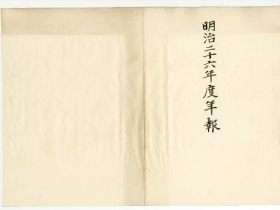 明治二十六年度年報